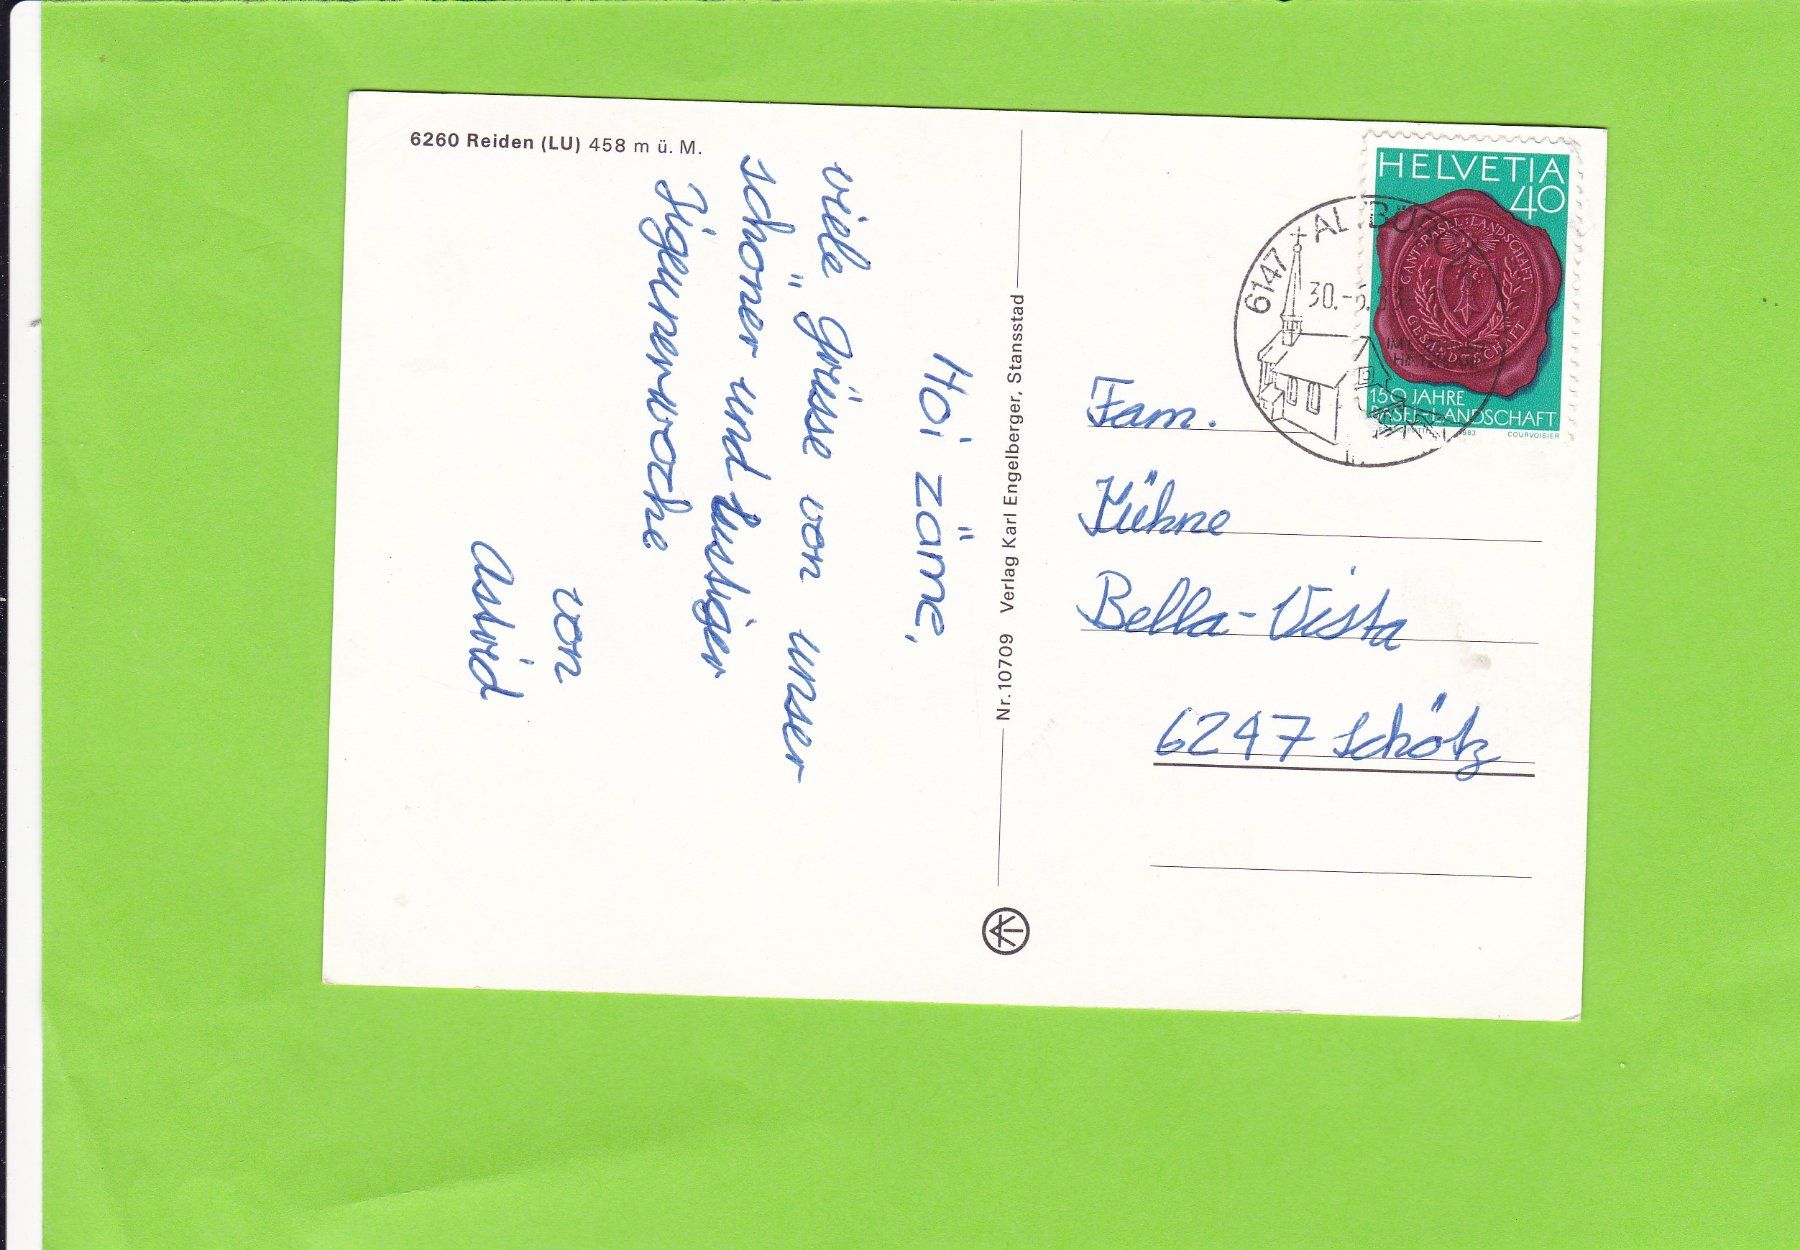 6260 Reiden (LU) 458 m ü. M.
Hoi zäme,
viele Grüsse von unser
schöner und lustiger
Zigeunerwoche
von
Astrid
Nr. 10709 Verlag Karl Engelberger, Stansstad
HELVETIA
40
CANT: BASEL: LANDSCHAFT
GESANDTSCHAFT
150 JAHRE
BASEL-LANDSCHAFT
COURVOISIER
6147
30.-5.
Fam.
Kühne
Bella-Vista
6247 Schötz